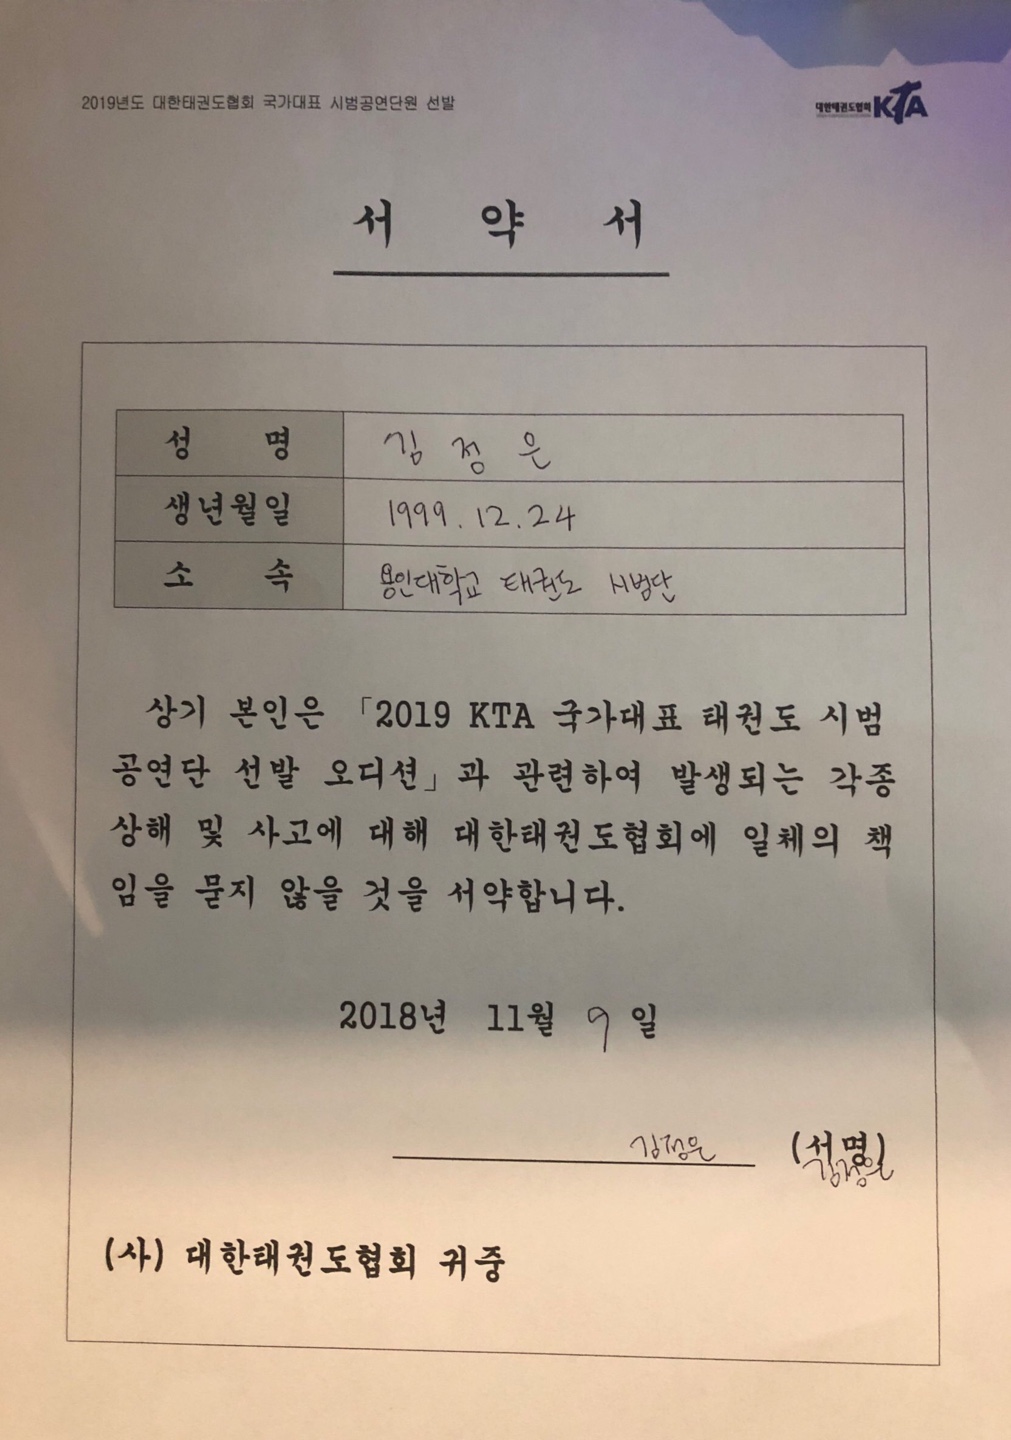 2019년도 대한태권도협회 국가대표 시범공연단원 선발
대한태권도협회 KTA
서 약 서
성 명 김 정 은
생년월일 1999. 12. 24
소 속 용인대학교 태권도 시범단
상기 본인은 「2019 KTA 국가대표 태권도 시범
공연단 선발 오디션」과 관련하여 발생되는 각종
상해 및 사고에 대해 대한태권도협회에 일체의 책
임을 묻지 않을 것을 서약합니다.
2018년 11월 9 일
김정은 (서명)
김정은
(사) 대한태권도협회 귀중